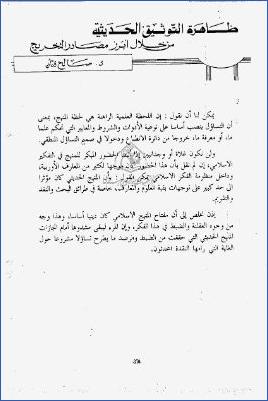 ظاهرة التوثيق الحديثية
من خلال أبرز مصادر التخريج
د. صالح
يمكن لنا أن نقول : إن اللحظة العلمية الراهنة هي لحظة المنهج، بمعنى
أن التساؤل ينصب أساسا على نوعية الأدوات والشروط والمعايير التي تحكم علما
ما، أو معرفة ما، خروجا من دائرة الانطباع ودخولا في صميم التساؤل المنطقي.
ولن نكون غلاة أو وجدانيين إذا الحضور المبكر للمنهج في التفكير
الاسلامي، إن لم نقل بأن هذا الحضور كان موجها لكثير من المعارف الأوربية،
وداخل منظومة الفكر الاسلامي يمكن القول : بأن المنهج الحديثي كان مؤثرا
إلى حد كبير على توجهات بقية العلوم والمعارف، خاصة في طرائق البحث والنقد
و
إذن نخلص إلى أن مفتاح المنهج الاسلامي كان دينيا أساسا، وهذا وجه
من وجوه العقلنة والضبط في هذا الفكر، وإن المرء ليبقى مشدوها أمام انجازات
المنهج الحديثي التي حققت من الضبط والرصد ما يطرح تساؤلا مشروعا حول
الغاية التي رامها النقدة المحدثون.